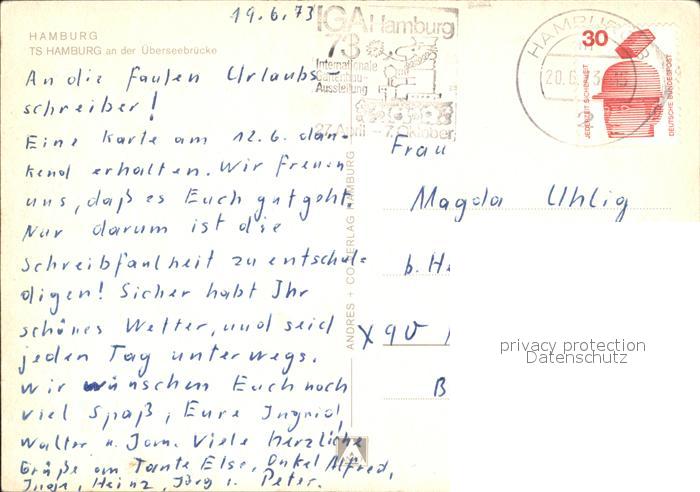 19.6.73
HAMBURG
TS HAMBURG an der Überseebrücke
An die faulen Urlaubs-
schreiber!
Eine Karte am 12.6. dan-
kend erhalten. Wir freuen
uns, daß es Euch gut geht.
Nur darum ist die
Schreibfaulheit zu entschul-
digen! Sicher habt Ihr
schönes Wetter, und seid
jeden Tag unterwegs.
Wir wünschen Euch noch
viel Spaß, Eure Ingrid,
Walter u. Jörn. Viele herzliche
Grüße an Tante Else, Onkel Alfred,
Inge, Heinz, Jörg u. Peter.
ANDRES + CO VERLAG HAMBURG
IGA Hamburg
73
Internationale
Gartenbau-
Ausstellung
27. April – 7. Oktober
HAMBURG
20.6.73
30
JEDERZEIT SICHERHEIT
DEUTSCHE BUNDESPOST
Frau
Magda Uhlig
b. He
X 90
B
privacy protection
Datenschutz